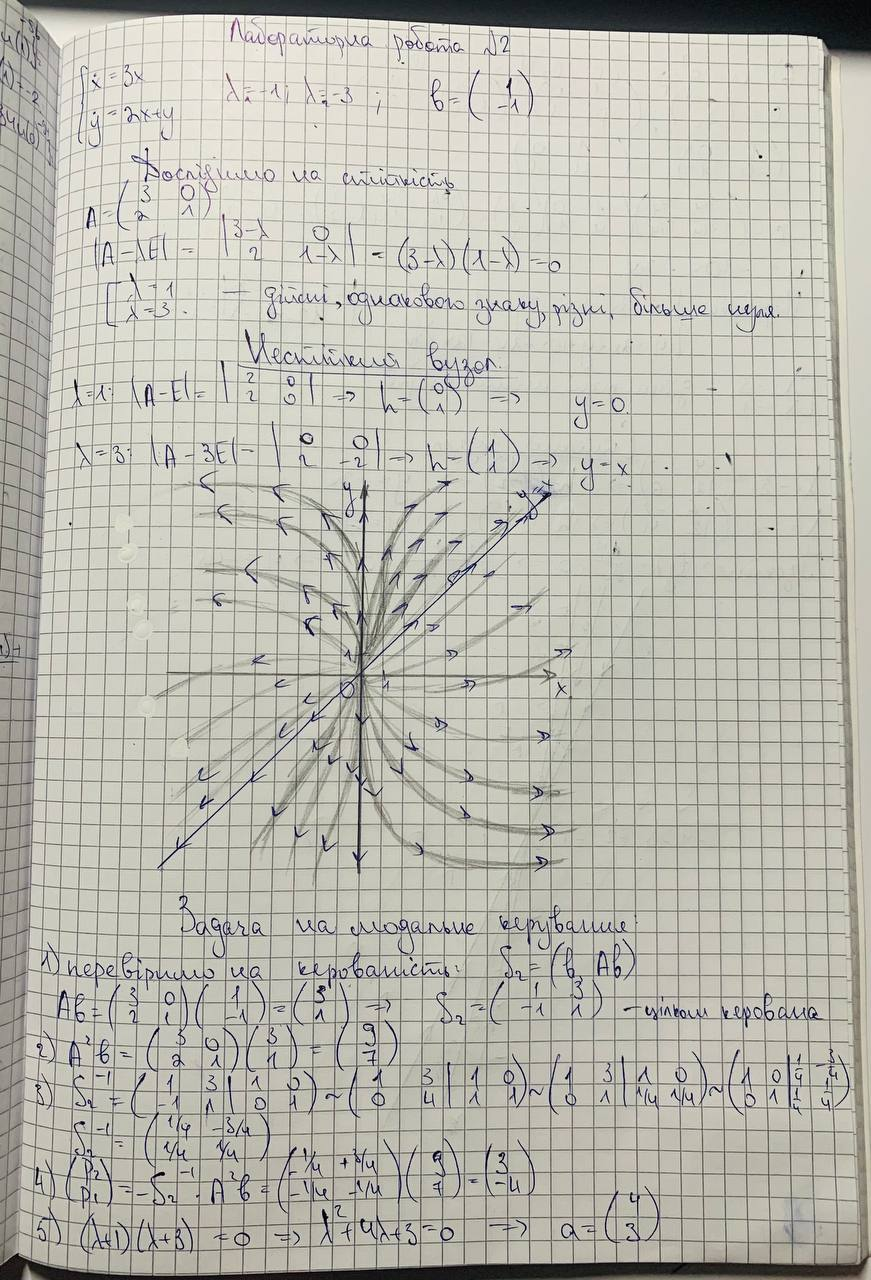 Лабораторна робота №2
{ ẋ = 3x
ẏ = 2x+y
λ₁=-1; λ₂=-3 ; b = (1 -1)
Дослідимо на стійкість
A = (3 0
2 1)
|A-λE| = |3-λ 0
2 1-λ| = (3-λ)(1-λ)=0
[ λ=1
λ=3. — дійсні, однакового знаку, різні, більше нуля.
Нестійкий вузол.
λ=1: |A-E| = |2 0
2 0| => h=(0 1) => y=0.
λ=3: |A-3E| = |0 0
2 -2| => h=(1 1) => y=x
y
y=x
1
0 1 x
Задача на модальне керування:
1) перевіримо на керованість: S₂=(b, Ab)
Ab = (3 0
2 1)(1 -1) = (3 1) => S₂=(1 3
-1 1) - цілком керована
2) A²b = (3 0
2 1)(3 1) = (9 7)
3) S₂⁻¹ = (1 3 | 1 0
-1 1 | 0 1) ~ (1 3 | 1 0
0 4 | 1 1) ~ (1 3 | 1 0
0 1 | 1/4 1/4) ~ (1 0 | 1/4 -3/4
0 1 | 1/4 1/4)
S₂⁻¹ = (1/4 -3/4
1/4 1/4)
4) (p₂ p₁) = -S₂⁻¹ · A²b = (-1/4 +3/4
-1/4 -1/4)(9 7) = (3 -4)
5) (λ+1)(λ+3) = 0 => λ²+4λ+3=0 => a=(4 3)